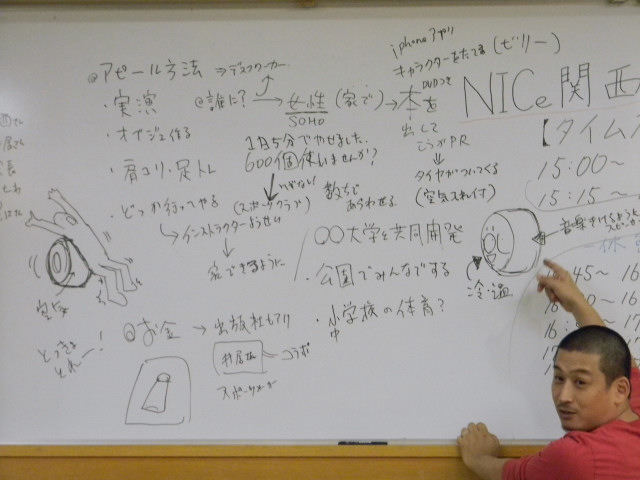 iphoneアプリ
キャラクターをたてる(ビリー)
@アピール方法 ⇒デスクワーカー
DVDつき
・実演
@誰に? → 女性(家で) → 本を
SOHO
NICe関西
・オイジェ作る
出して
こうかPR
1日5分でやせました。
600個使いませんか?
【タイム
・肩コリ・足トレ
15:00~
タイヤがついてくる
(空気入れ付)
15:15~
・どっか行ってやる
(スポーツクラブ)
数ちで
あらわせる
→インストラクターようせい
〇〇大学と共同開発
家でできるように
・公園でみんなでする
冷・温
45~ 16
空気
@お金 → 出版社もアリ
・小学校の体育?
中
コラボ
スポーツメーカー